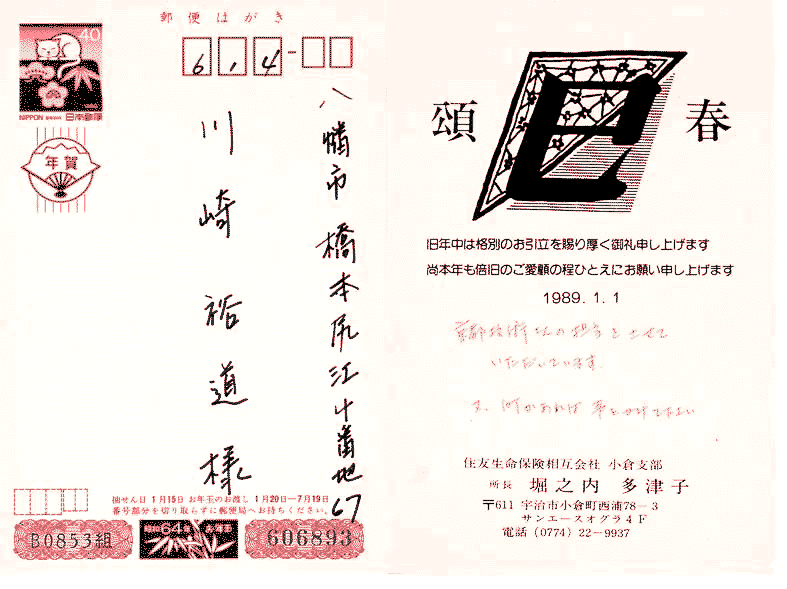 郵便はがき
40
NIPPON 日本郵便
年賀
6 1 4
八幡市橋本尻江十番地
67
川崎裕道様
抽せん日 1月15日 お年玉のお渡し 1月20日―7月19日
番号部分を切り取らずに郵便局へお持ちください。
B0853組
昭和64年
606893
頌 春
旧年中は格別のお引立を賜り厚く御礼申し上げます
尚本年も倍旧のご愛顧の程ひとえにお願い申し上げます
1989.1.1
の担当をさせて
いただいています。
又、何かあれば
住友生命保険相互会社 小倉支部
所長 堀之内 多津子
〒611 宇治市小倉町西浦78-3
サンエースオグラ4F
電話 (0774) 22-9937